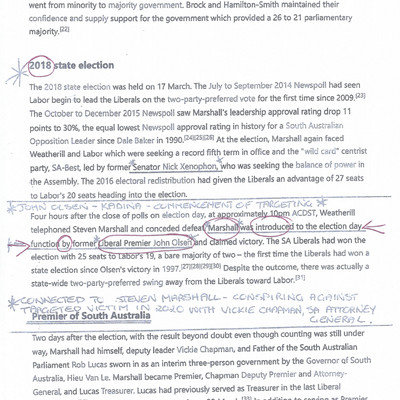 went from minority to majority government. Brock and Hamilton-Smith maintained their
confidence and supply support for the government which provided a 26 to 21 parliamentary
majority.[22]
2018 state election
The 2018 state election was held on 17 March. The July to September 2014 Newspoll had seen
Labor begin to lead the Liberals on the two-party-preferred vote for the first time since 2009.[23]
The October to December 2015 Newspoll saw Marshall's leadership approval rating drop 11
points to 30%, the equal lowest Newspoll approval rating in history for a South Australian
Opposition Leader since Dale Baker in 1990.[24][25][26] At the election, Marshall again faced
Weatherill and Labor which were seeking a record fifth term in office and the "wild card" centrist
party, SA-Best, led by former Senator Nick Xenophon, who was seeking the balance of power in
the Assembly. The 2016 electoral redistribution had given the Liberals an advantage of 27 seats
to Labor's 20 seats heading into the election.
* JOHN OLSEN - KADINA - COMMENCEMENT OF TARGETING *
Four hours after the close of polls on election day, at approximately 10pm ACDST, Weatherill
telephoned Steven Marshall and conceded defeat. Marshall was introduced to the election day
function by former Liberal Premier John Olsen and claimed victory. The SA Liberals had won the
election with 25 seats to Labor's 19, a bare majority of two – the first time the Liberals had won a
state election since Olsen's victory in 1997.[27][28][29][30] Despite the outcome, there was actually a
state-wide two-party-preferred swing away from the Liberals toward Labor.[31]
* CONNECTED TO STEVEN MARSHALL - CONSPIRING AGAINST
TARGETED VICTIM IN 2020 WITH VICKIE CHAPMAN, SA ATTORNEY
GENERAL.
Premier of South Australia
Two days after the election, with the result beyond doubt even though counting was still under
way, Marshall had himself, deputy leader Vickie Chapman, and Father of the South Australian
Parliament Rob Lucas sworn in as an interim three-person government by the Governor of South
Australia, Hieu Van Le. Marshall became Premier, Chapman Deputy Premier and Attorney-
General, and Lucas Treasurer. Lucas had previously served as Treasurer in the last Liberal